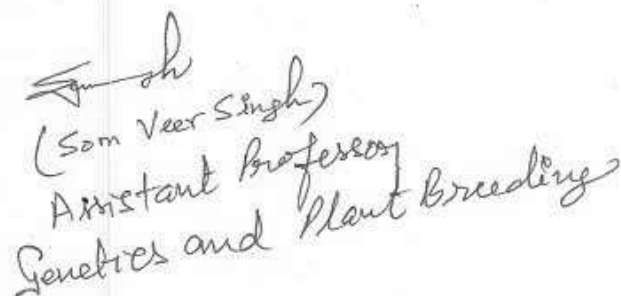 (Som Veer Singh)
Assistant Professor
Genetics and Plant Breeding